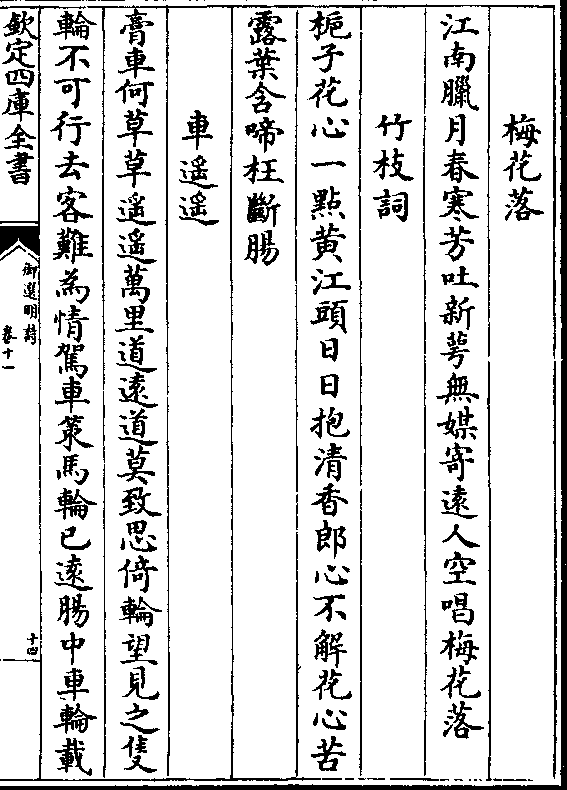 梅花落
江南臘月春寒芳吐新萼無媒寄遠人空唱梅花落
竹枝詞
梔子花心一點黄江頭日日抱清香郎心不解花心苦
露葉含啼枉斷腸
車遥遥
膏車何草草遥遥萬里道遠道莫致思倚輪望見之隻
輪不可行去客難為情駕車策馬輪已遠腸中車輪載
欽定四庫全書
御選明詩
卷十一
十四